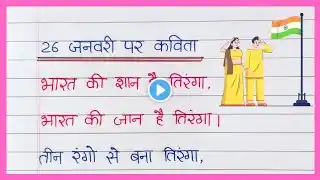 26 जनवरी पर कविता
भारत की शान है तिरंगा,
भारत की जान है तिरंगा।
तीन रंगो से बना तिरंगा,